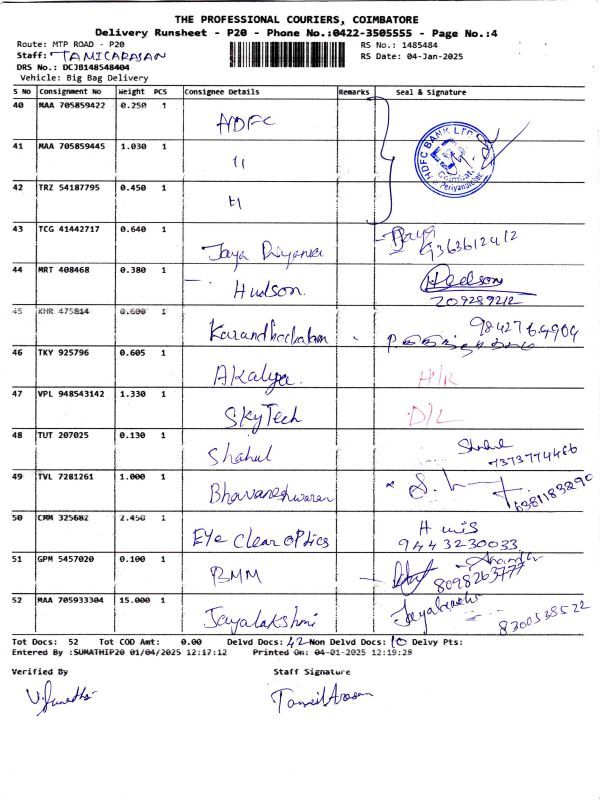 THE PROFESSIONAL COURIERS, COIMBATORE
Delivery Runsheet - P20 - Phone No.:0422-3505555 - Page No.:4
Route: MTP ROAD - P20
RS No.: 1485484
Staff: TAMICARASAN
RS Date: 04-Jan-2025
DRS No.: DCJB148548404
Vehicle: Big Bag Delivery
S No Consignment No Weight PCS Consignee Details Remarks Seal & Signature
40 MAA 705859422 0.250 1 HDFC
41 MAA 705859445 1.030 1 11
HDFC BANK LTD
Coimbatore
42 TRZ 54187795 0.450 1 11
43 TCG 41442717 0.640 1 Jaya Priyanka Jaya
9363612412
44 MRT 408468 0.380 1 Hudson. Hudson
209289212
45 KHR 475814 0.600 1 Karandhachalam 9842764904
46 TKY 925796 0.605 1 Akalya. H/R
47 VPL 948543142 1.330 1 SkyTech D/L
48 TUT 207025 0.130 1 Shahul Shahul
7373774466
49 TVL 7281261 1.000 1 Bhavaneshwaran 6381183890
50 CMM 325682 2.450 1 Eye Clear optics
9443230033
51 GPM 5457020 0.100 1 BMM
8098263777
52 MAA 705933304 15.000 1 Jayalakshmi Jayalakshmi
8300538522
Tot Docs: 52 Tot COD Amt: 0.00 Delvd Docs: 42 Non Delvd Docs: 10 Delvy Pts:
Entered By :SUMATHIP20 01/04/2025 12:17:12 Printed On: 04-01-2025 12:19:28
Verified By Staff Signature
V. Sumathi Tamil Arasan